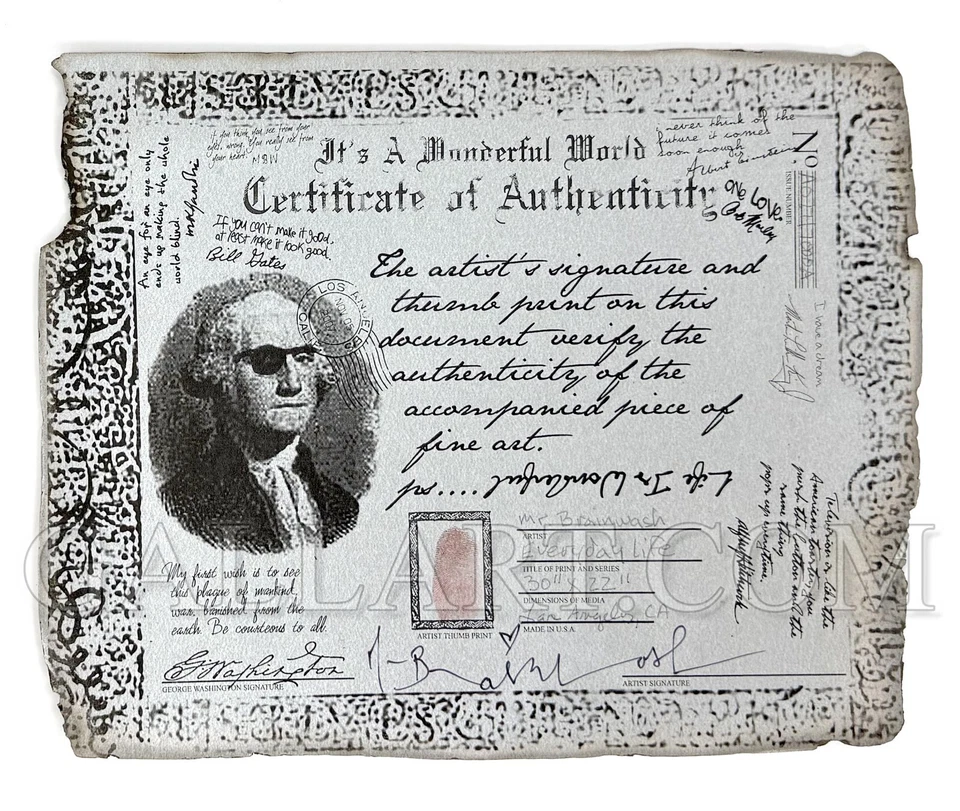 If you think you see from your
eyes, wrong. You really see from
your heart.
MBW
An eye for an eye only
ends up making the whole
world blind.
It's A Wonderful World
Certificate of Authenticity
I never think of the
future it comes
soon enough
Albert Einstein
No
ISSUE NUMBER
One Love
Bob Marley
If you can't make it good,
at least make it look good.
Bill Gates
LOS ANGELES
The artist's signature and
thumb print on this
document verify the
authenticity of the
accompanied piece of
fine art.
ps.....Life Is Wonderful
I have a dream
Television is like the
American toaster, you
push the button and the
same thing
pops up everytime.
Alfred Hitchcock
Mr Brainwash
ARTIST
Everyday Life
TITLE OF PRINT AND SERIES
30" x 22"
DIMENSIONS OF MEDIA
Los Angeles, CA
MADE IN U.S.A.
ARTIST THUMB PRINT
My first wish is to see
this plague of mankind,
war, banished from the
earth. Be courteous to all.
G Washington
GEORGE WASHINGTON SIGNATURE
ARTIST SIGNATURE
GALLART.COM